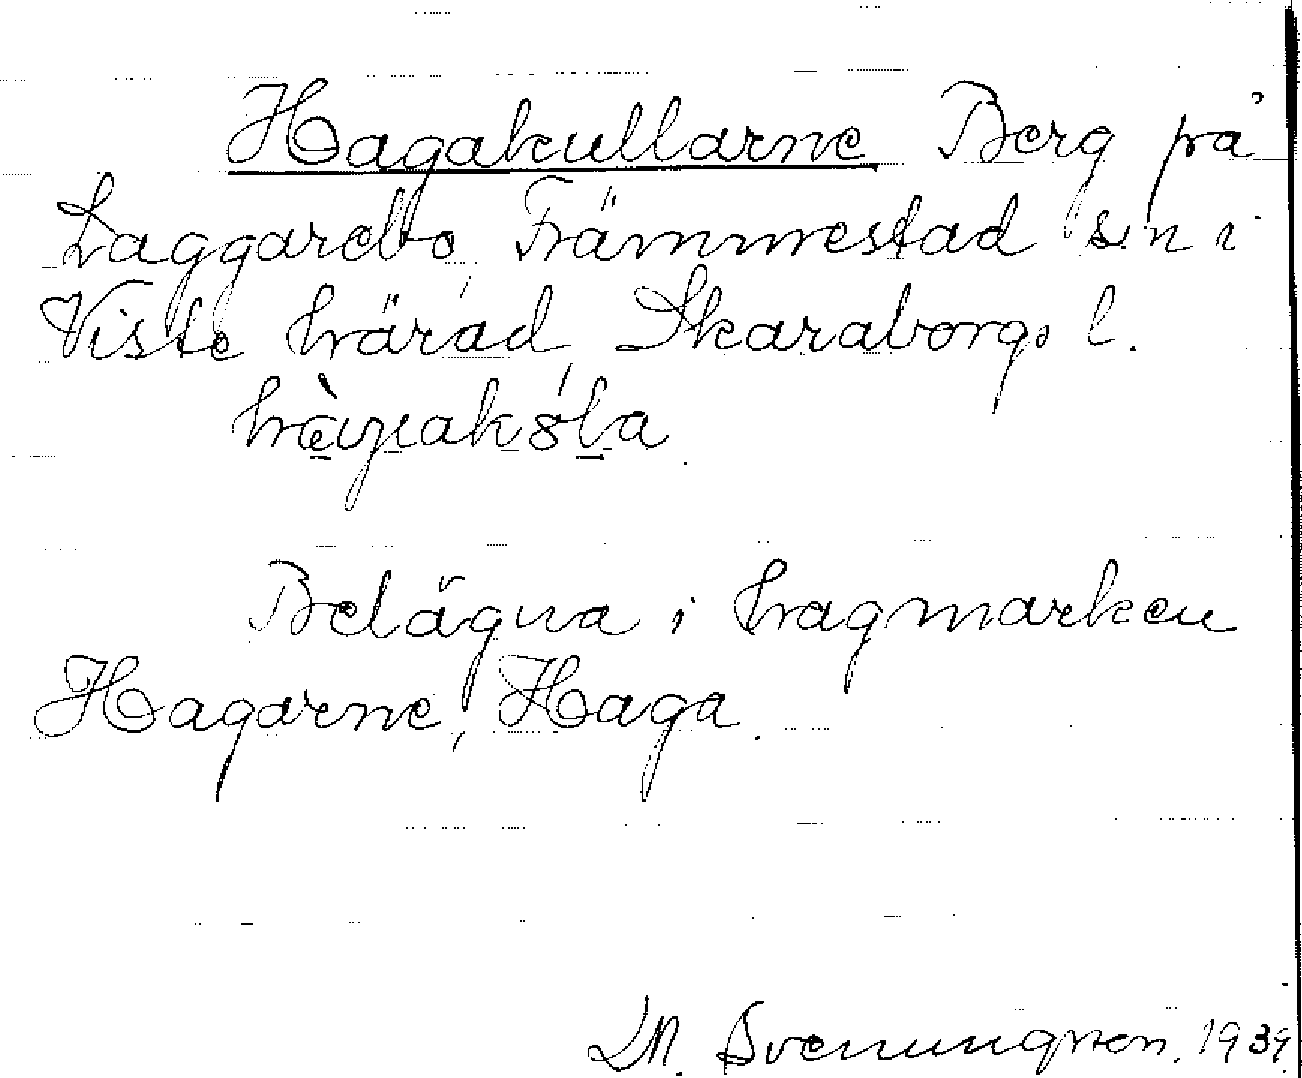 Hagakullarne Berg på
Laggarebo, Främmestad s:n i
Viste härad, Skaraborgs l.
Belägna i hagmarken
Hagarne, Haga.
Svenungsson. 1939.